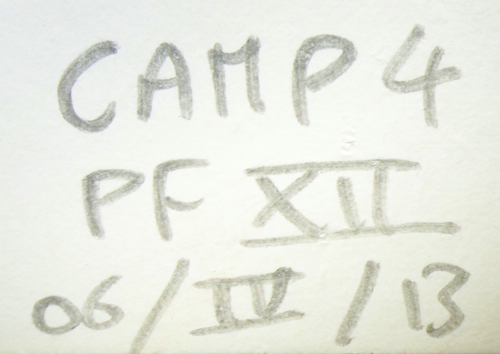 CAMP 4
PF XII
06/IV/13